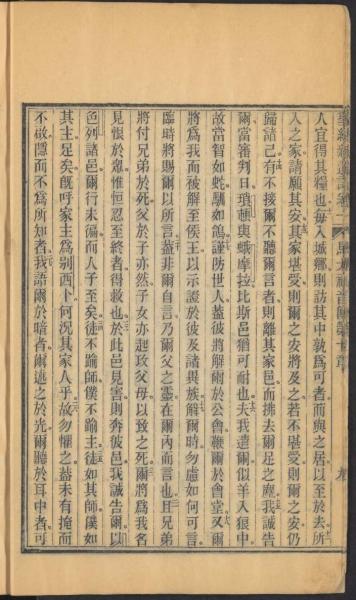 人宜得其糧也每入城鄉則訪其中孰爲可者而與之居以至於去所
入之家請願其安其家堪受則爾之安將及之若不堪受則爾之安仍
歸諸己有不接爾不聽爾言者則離其家邑而拂去爾足之塵我誠告
爾當審判日瑣頓與蛾摩拉比斯邑猶可耐也夫我遣爾似羊入狼中
故當智如蛇馴如鴿謹防世人蓋彼將解爾於公會鞭爾於會堂又爾
將爲我而被解至侯王以示證於彼及諸異族解爾時勿慮如何可言
臨時將賜爾以所言蓋非爾自言乃爾父之靈在爾內而言也且兄弟
將付兄弟於死父於子亦然子女亦起攻父母以致之死爾將爲我名
見恨於眾惟恒忍至終者得救也於此邑見害則奔彼邑我誠告爾以
色列諸邑爾行未徧而人子至矣徒不踰師僕不踰主徒如其師僕如
其主足矣旣呼家主爲別西卜何況其家人乎故勿懼之蓋未有掩而
不啟隱而不爲所知者我語爾於暗者爾述之於光爾聽於耳中者可